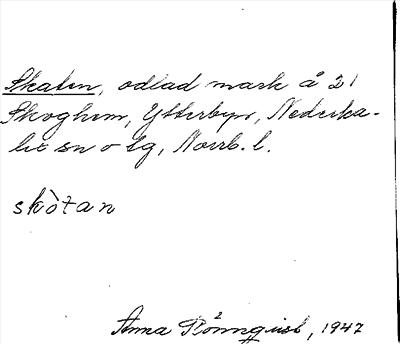 Skatan, odlad mark å 21
Skoghem, Ytterbyn, Nederka-
lix sn o tg, Norrb. l.
skòtan
Anna Rönnquist, 1947